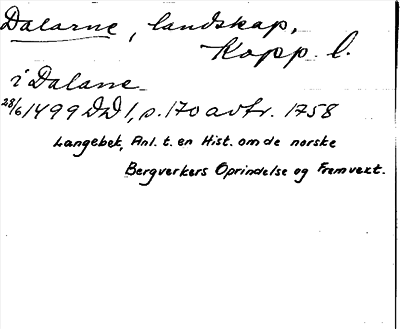 Dalarne, landskap,
Kopp. l.
i Dalane
28/6 1499 DD 1, s. 170 avtr. 1758
Langebek, Anl. t. en Hist. om de norske
Bergverkers Oprindelse og Fremvext.